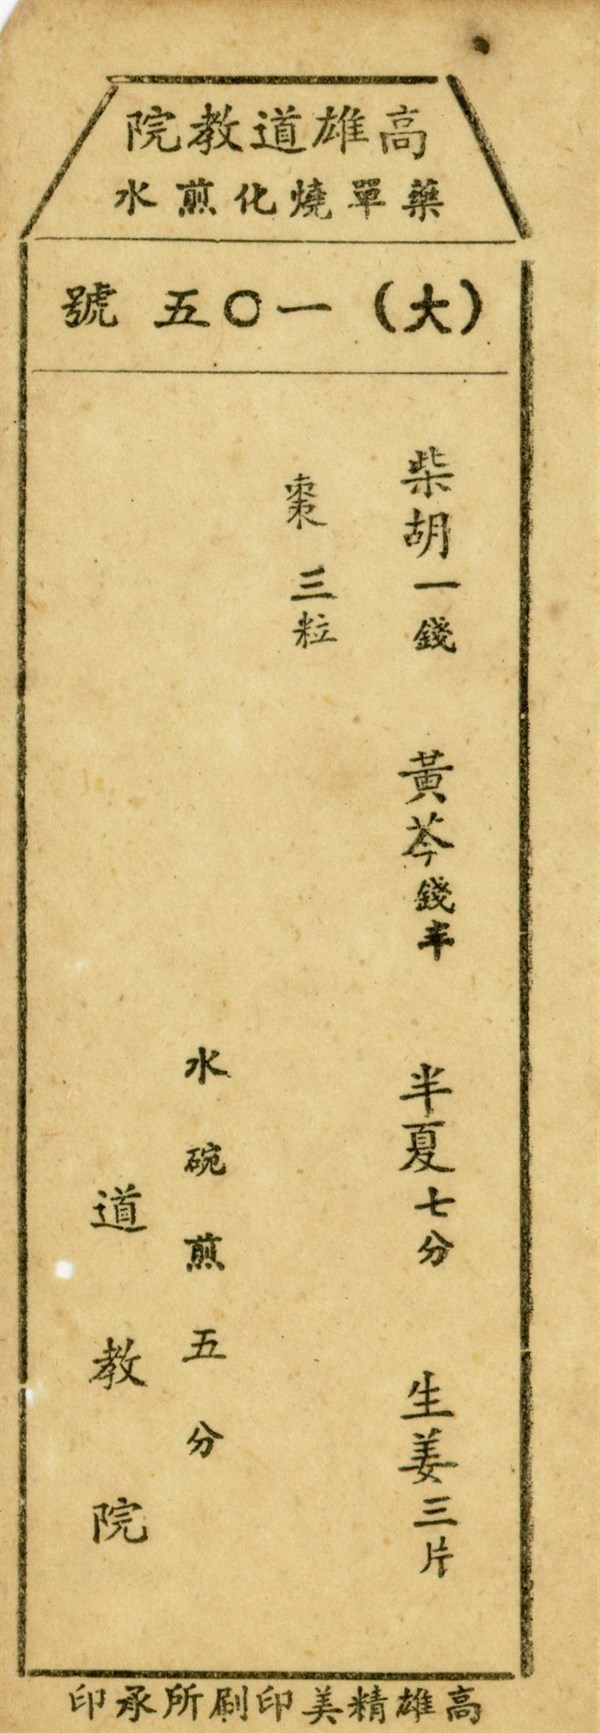 高雄道教院
藥單燒化煎水
（大）一〇五號
柴胡一錢 黃芩錢半 半夏七分 生姜三片
棗三粒
水碗煎五分
道教院
高雄精美印刷所承印